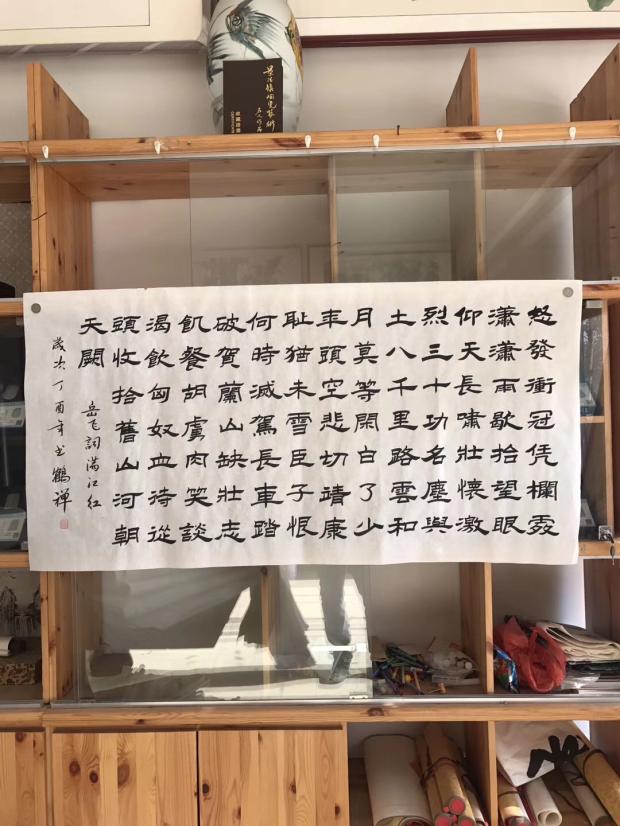 景德鎮陶瓷藝術
名人作品
收藏證書
怒發衝冠凭欄處
瀟瀟雨歇拾望眼
仰天長嘯壯懷激
烈三十功名塵與
土八千里路雲和
月莫等閑白了少
年頭空悲切靖康
耻猶未雪臣子恨
何時滅駕長車踏
破賀蘭山缺壯志
飢餐胡虜肉笑談
渴飲匈奴血待從
頭收拾舊山河朝
天闕
岳飞詞满江红
歲次丁酉年书鶴禅